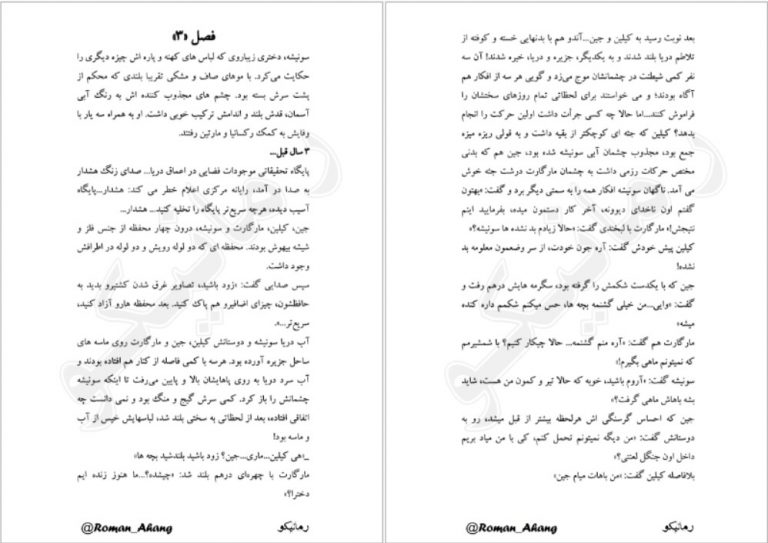 فصل «۳»
سونیشه، دختری زیباروی که لباس های کهنه و پاره اش چیزه دیگری را
حکایت می‌کرد. با موهای صاف و مشکی تقریبا بلندی که محکم از
پشت سرش بسته بود. چشم های مجذوب کننده اش به رنگ آبی
آسمان، قدش بلند و اندامش ترکیب خوبی داشت. او به همراه سه یار با
وفایش به کمک رکسانیا و مارتین رفتند.
۳ سال قبل...
پایگاه تحقیقاتی موجودات فضایی در اعماق دریا... صدای زنگ هشدار
به صدا در آمد، رایانه مرکزی اعلام خطر می کند: هشدار...پایگاه
آسیب دیده، هرچه سریع‌تر پایگاه را تخلیه کنید... هشدار...
جین، کیلین، مارگارت و سونیشه، درون چهار محفظه از جنس فلز و
شیشه بیهوش بودند. محفظه ای که دو لوله رویش و دو لوله در اطرافش
وجود داشت.
سپس صدایی گفت: «زود باشید، تصاویر غرق شدن کشتیرو بدید به
حافظشون، چیزای اضافیرو هم پاک کنید. بعد محفظه هارو آزاد کنید،
سریع‌تر...».
آب دریا سونیشه و دوستانش کیلین، جین و مارگارت روی ماسه های
ساحل جزیره آورده بود. هرسه با کمی فاصله از کنار هم افتاده بودند و
آب سرد دریا به روی پاهایشان بالا و پایین می‌رفت تا اینکه سونیشه
چشمانش را باز کرد. کمی سرش گیج و منگ بود و نمی دانست چه
اتفاقی افتاده، بعد از لحظاتی به سختی بلند شد، لباسهایش خیس از آب
و ماسه بود!
_«هی کیلین...ماری...جین؟ زود باشید بلندشید بچه ها»
مارگارت با چهره‌ای درهم بلند شد: «چیشده؟...ما هنوز زنده ایم
دخترا؟»
رمانیکو
@Roman_Ahang
بعد نوبت رسید به کیلین و جین...آندو هم با بدنهایی خسته و کوفته از
تلاطم دریا بلند شدند و به یکدیگر، جزیره و دریا، خیره شدند! آن سه
نفر کمی شیطنت در چشمانشان موج می‌زد و گویی هر سه از افکار هم
آگاه بودند؛ و می خواستند برای لحظاتی تمام روزهای سختشان را
فراموش کنند...اما حالا چه کسی جرأت داشت اولین حرکت را انجام
بدهد؟ کیلین که جثه ای کوچکتر از بقیه داشت و به قولی ریزه میزه
جمع بود، مجذوب چشمان آبی سونیشه شده بود، جین هم که بدنی
مختص حرکات رزمی داشت به چشمان مارگارت درشت جثه خوش
می آمد. ناگهان سونیشه افکار همه را به سمتی دیگر برد و گفت: «بهتون
گفتم اون ناخدای دیوونه، آخر کار دستمون میده، بفرمایید اینم
نتیجش!» مارگارت با لبخندی گفت: «حالا زیادم بد نشده ها سونیشه؟»
کیلین پیش خودش گفت: آره جون خودت، از سر وضعمون معلومه بد
نشده!
جین که با یکدست شکمش را گرفته بود، سگرمه هایش درهم رفت و
گفت: «وایی...من خیلی گشنمه بچه ها، حس میکنم شکمم داره کنده
میشه»
مارگارت هم گفت: «آره منم گشنمه... حالا چیکار کنیم؟ با شمشیرمم
که نمیتونم ماهی بگیرم!»
سونیشه گفت: «آروم باشید، خوبه که حالا تیر و کمون من هست، شاید
بشه باهاش ماهی گرفت؟»
جین که احساس گرسنگی اش هرلحظه بیشتر از قبل میشد، رو به
دوستانش گفت: «من دیگه نمیتونم تحمل کنم، کی با من میاد بریم
داخل اون جنگل لعنتی؟»
بلافاصله کیلین گفت: «من باهات میام جین»
رمانیکو
@Roman_Ahang